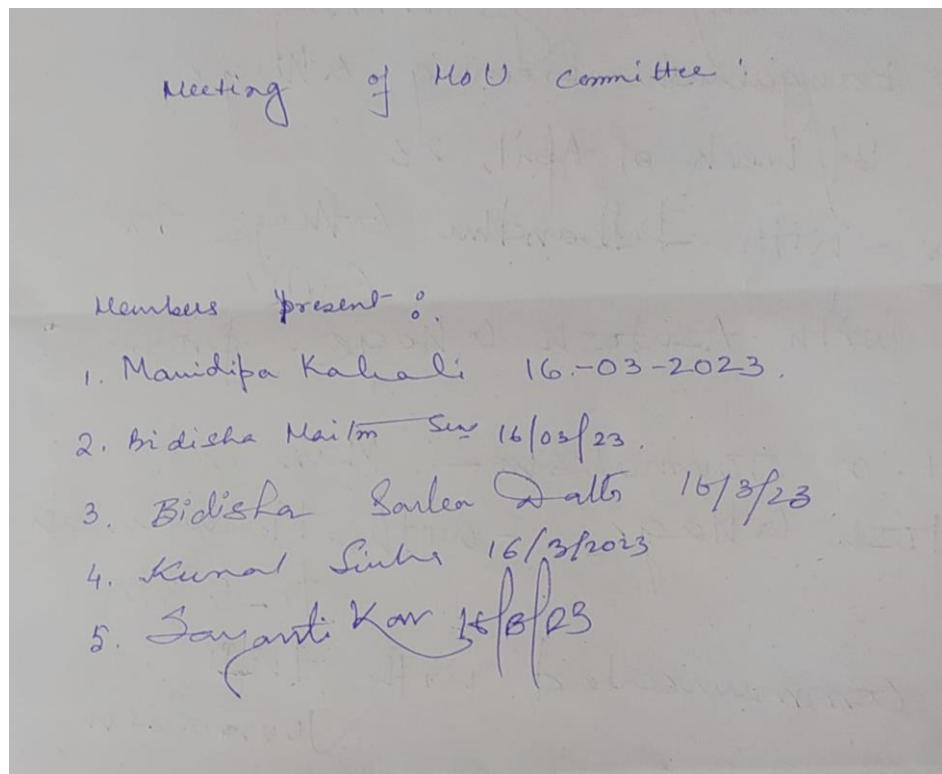 Meeting of MoU Committee :
Members present :
1. Manidipa Kahali 16-03-2023.
2. Bidisha Maitra Sen 16/03/23.
3. Bidisha Sarkar Datta 16/3/23
4. Kunal Sinha 16/3/2023
5. Sayanti Kar 16/3/23